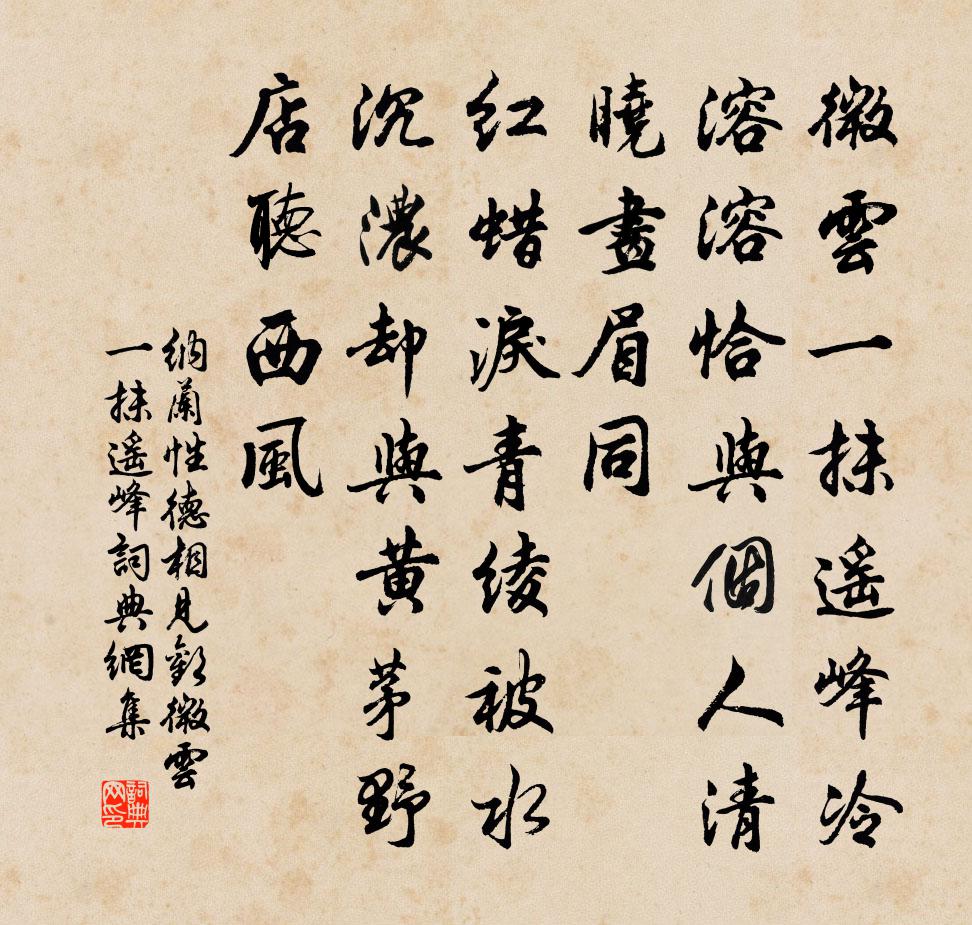 微雲一抹遥峰冷
溶溶恰與個人清
曉畫眉同
红蜡淚青綾被水
沉濃却與黄茅野
店聽西風
纳蘭性德相見歡微雲
一抹遥峰詞典網集
詞典网印